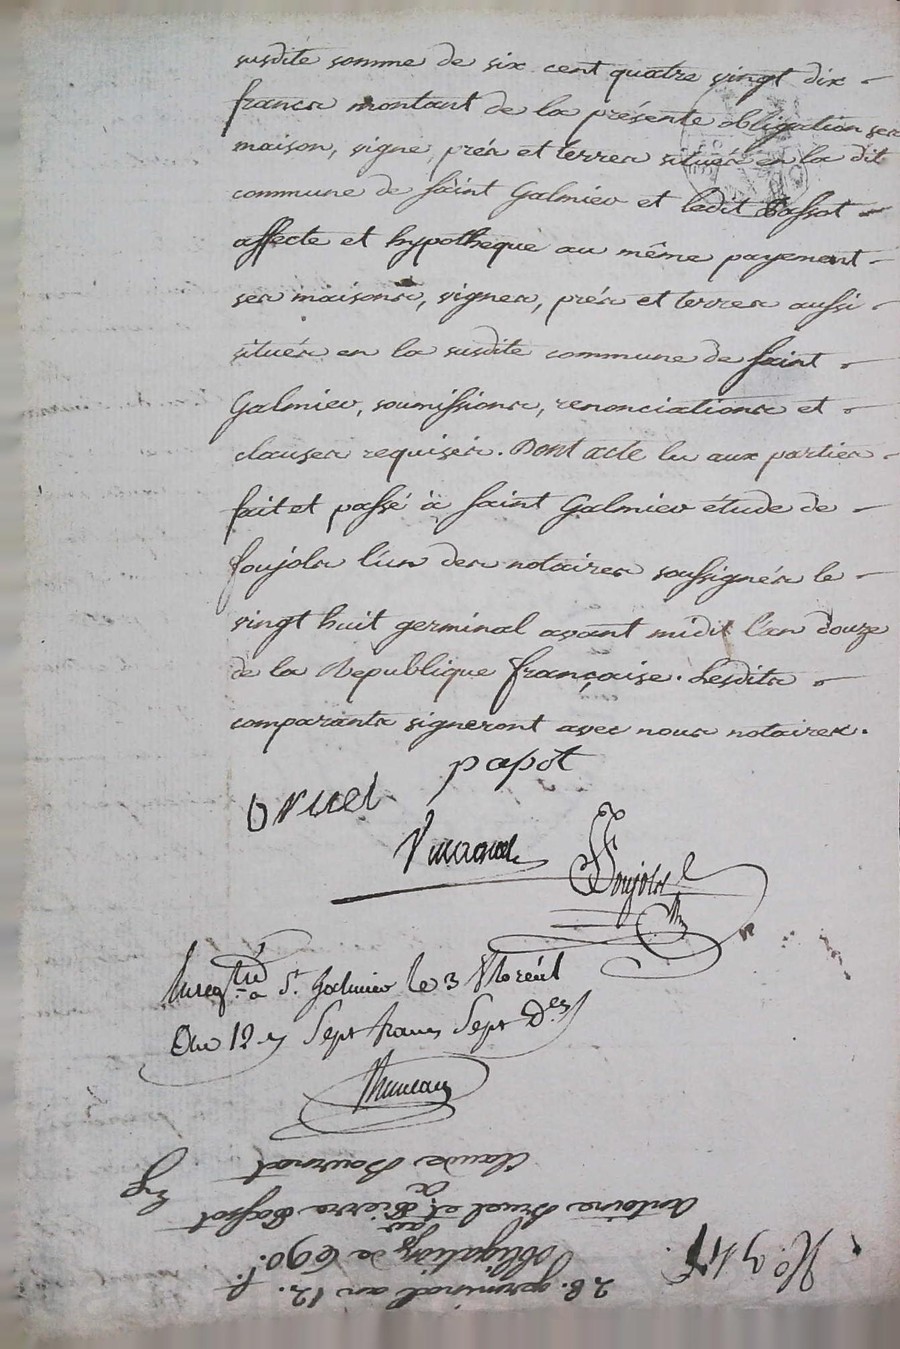 susdite somme de six cent quatre vingt dix
francs montant de la présente obligation ses
maison, vigne, prés et terres situés en la dit
commune de Saint Galmier et ledit Bassot
affecte et hypotheque au même payement
ses maisons, vignes, prés et terres aussi
situés en la susdite commune de Saint
Galmier, soumissions, renonciations et
clauses requises. Dont acte lu aux parties
fait et passé à Saint Galmier étude de
foujols l'un des notaires soussignés le
vingt huit germinal avant midit l'an douze
de la Republique française. Lesdits
comparants signeront avec nous notaires.
papot
Foujols
Enregtré à St. Galmier le 3 floréal
an 12 Sept francs Sept
28. germinal an 12.
obligation de 690 f.
par
Antoine et Pierre Bassot
à
Claude
No.